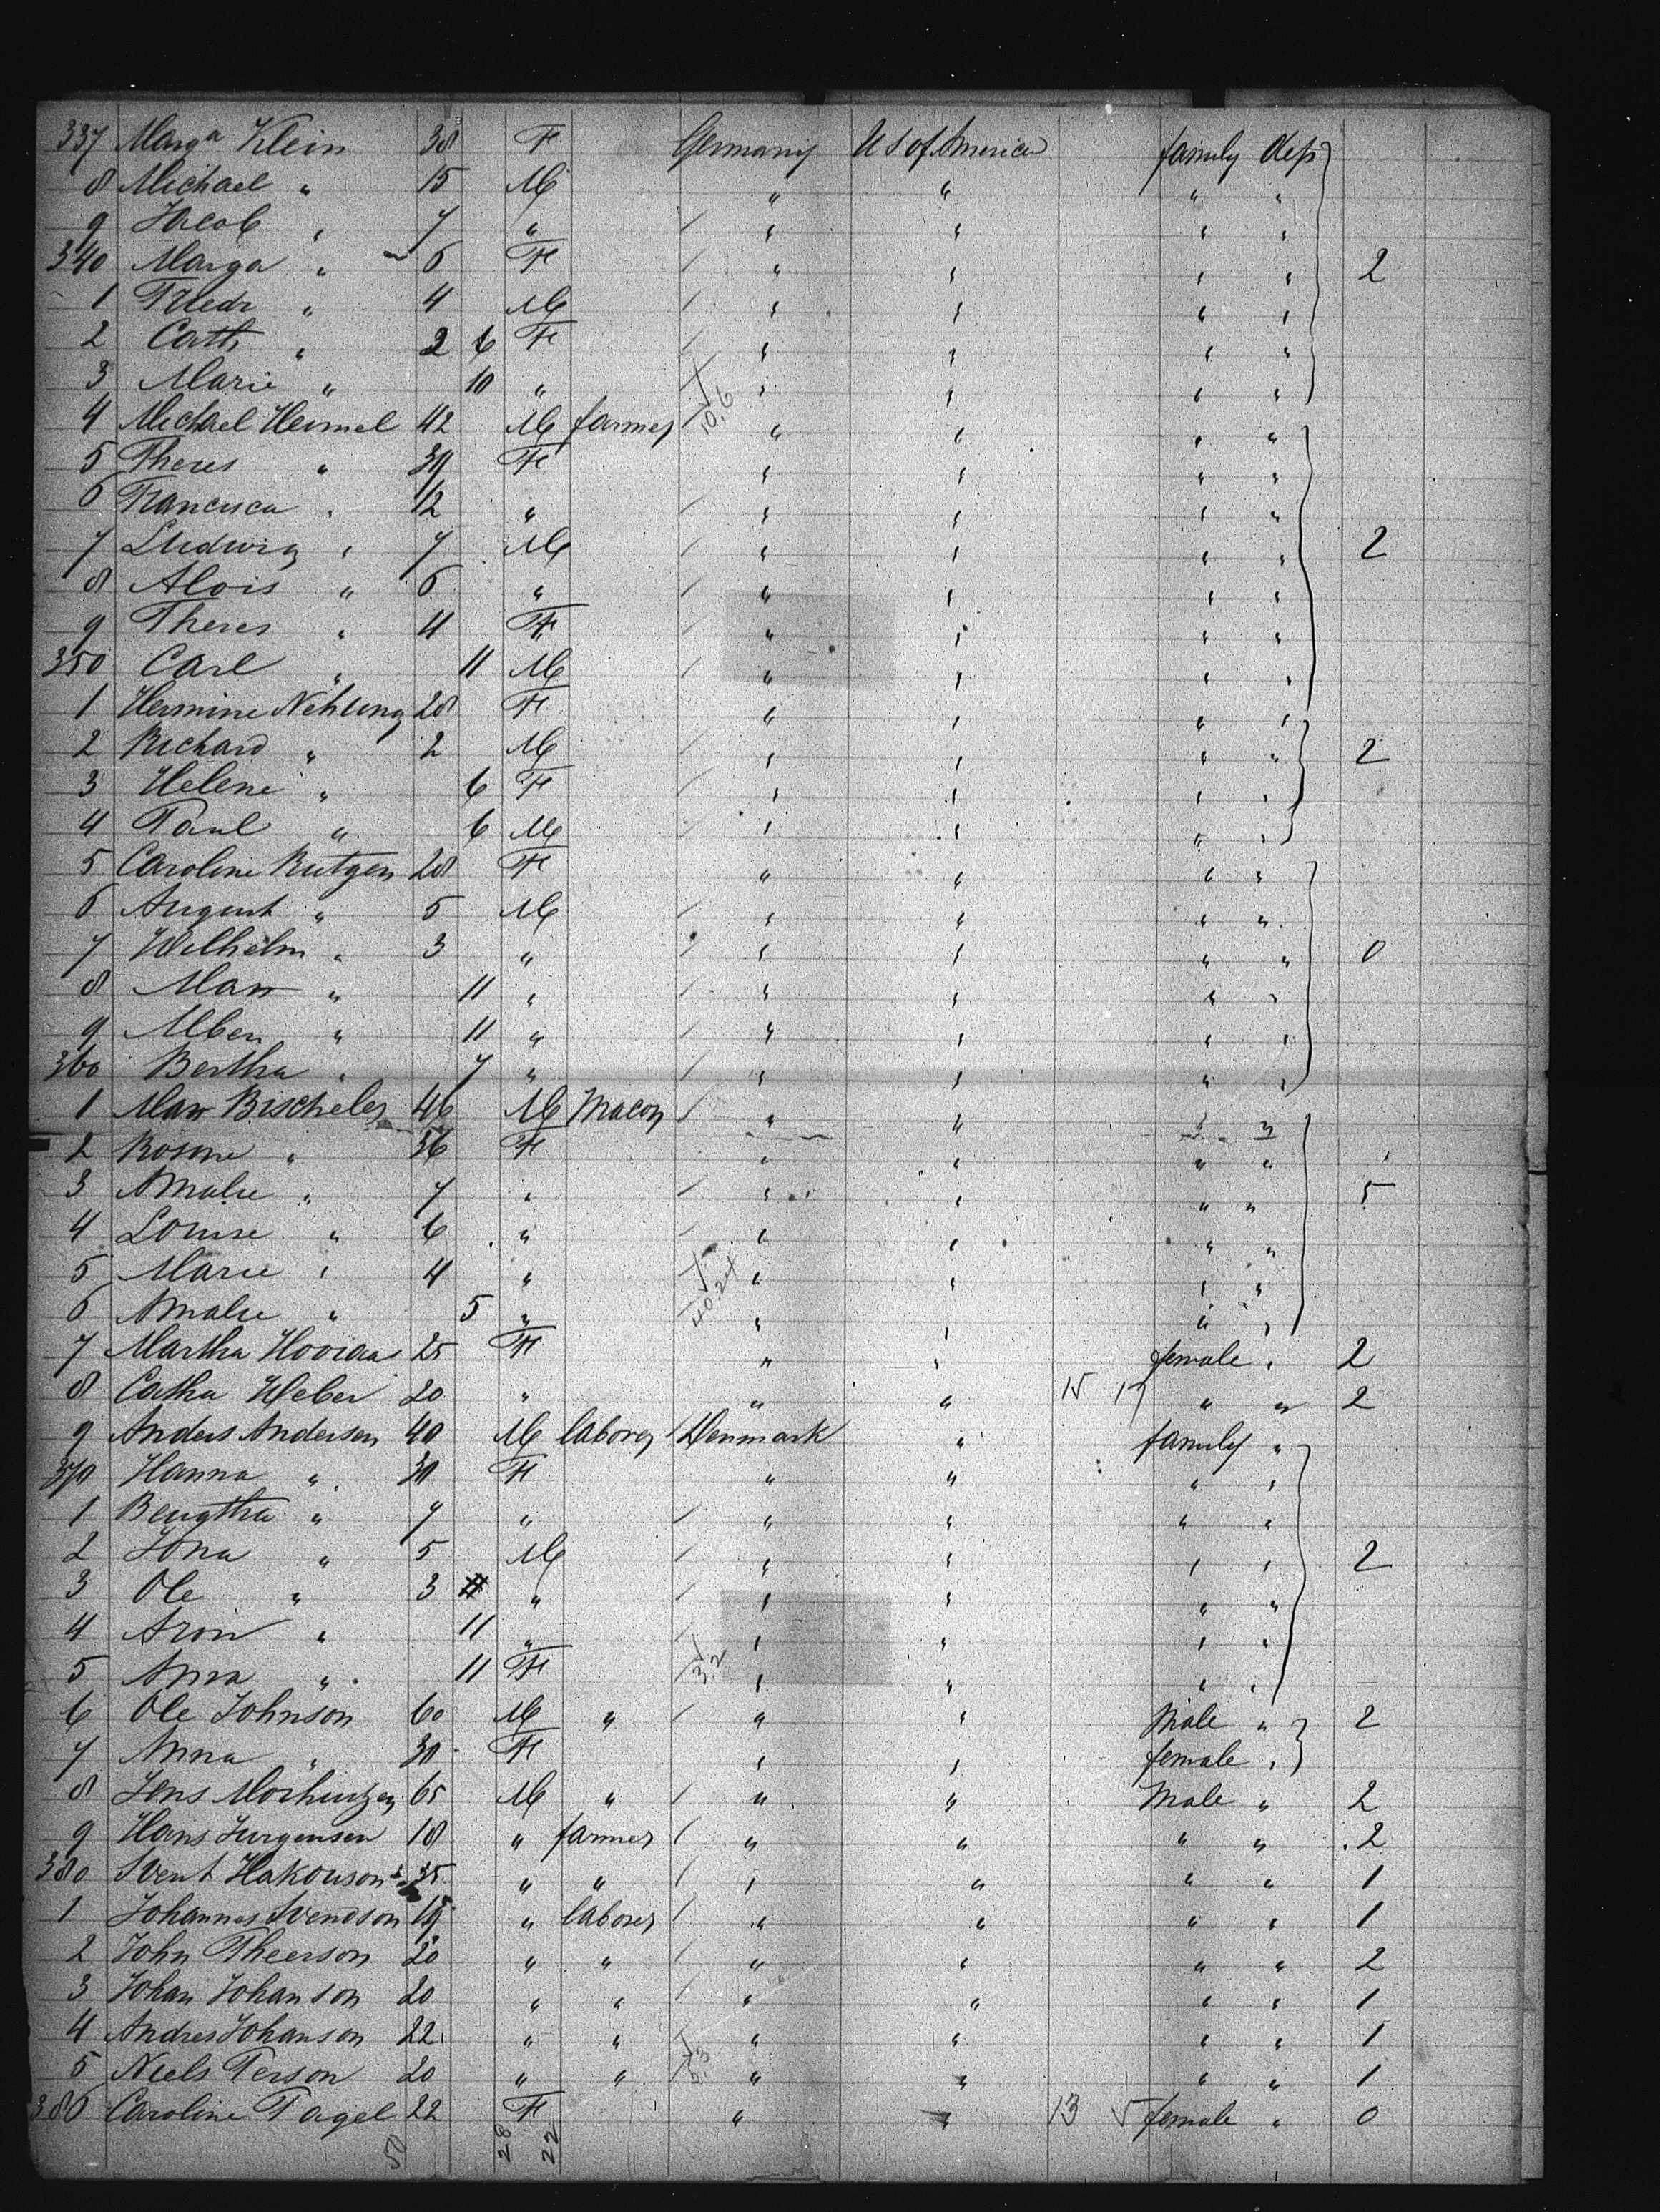 337 Marga Klein 38 F Germany U S of America family dep
8 Michael " 15 M " " " "
9 Jacob " 7 " " " " "
340 Marga " 6 F " " " " 2
1 Friedr " 4 M " " " "
2 Cath " 2 6 F " " " "
3 Marie " 10 " " " " "
4 Michael Heimel 42 M farmer 10.6 " " " "
5 Theres " 39 F " " " "
6 Francisca " 12 " " " " "
7 Ludwig " 7 M " " " " 2
8 Alois " 6 " " " " "
9 Theres " 4 F " " " "
350 Carl " 11 M " " " "
1 Hermine Nehling 28 F " " " "
2 Richard " 2 M " " " " 2
3 Helene " 6 F " " " "
4 Paul " 6 M " " " "
5 Caroline Rutgen 28 F " " " "
6 August " 5 M " " " "
7 Wilhelm " 3 " " " " " 0
8 Max " 11 " " " " "
9 Alber " 11 " " " " "
360 Bertha " 7 " " " " "
1 Max Bischeler 46 M Macon " " " "
2 Rosine " 36 F " " " "
3 Amalie " 7 " " " " " 5
4 Louise " 6 " " " " "
5 Marie " 4 " " " " "
6 Amalie " 5 " 40.24 " " " "
7 Martha 25 F " " female " 2
8 Catha Weber 20 " " " 15 17 " " 2
9 Anders Andersen 40 M laborer Denmark " family "
370 Hanna " 30 F " " " "
1 Bengtha " 7 " " " " "
2 Jona " 5 M " " " " 2
3 Ole " 3 " " " " "
4 Aron " 11 " " " " "
5 Anna " 11 F 3.2 " " " "
6 Ole Johnson 60 M " " " Male " 2
7 Anna " 30 F " " female "
8 Jens 65 M " " " Male " 2
9 Hans Jurgensen 18 " farmer " " " " 2
380 Svent Hakonson 35 " " " " " " 1
1 Johannes Svendson 19 " laborer " " " " 1
2 John Pheerson 20 " " " " " " 2
3 Johan Johanson 20 " " " " " " 1
4 Andres Johanson 22 " " " " " " 1
5 Niels Person 20 " " " " " " 1
386 Caroline Pagel 22 F " " 13 5 female " 0
50 28 22